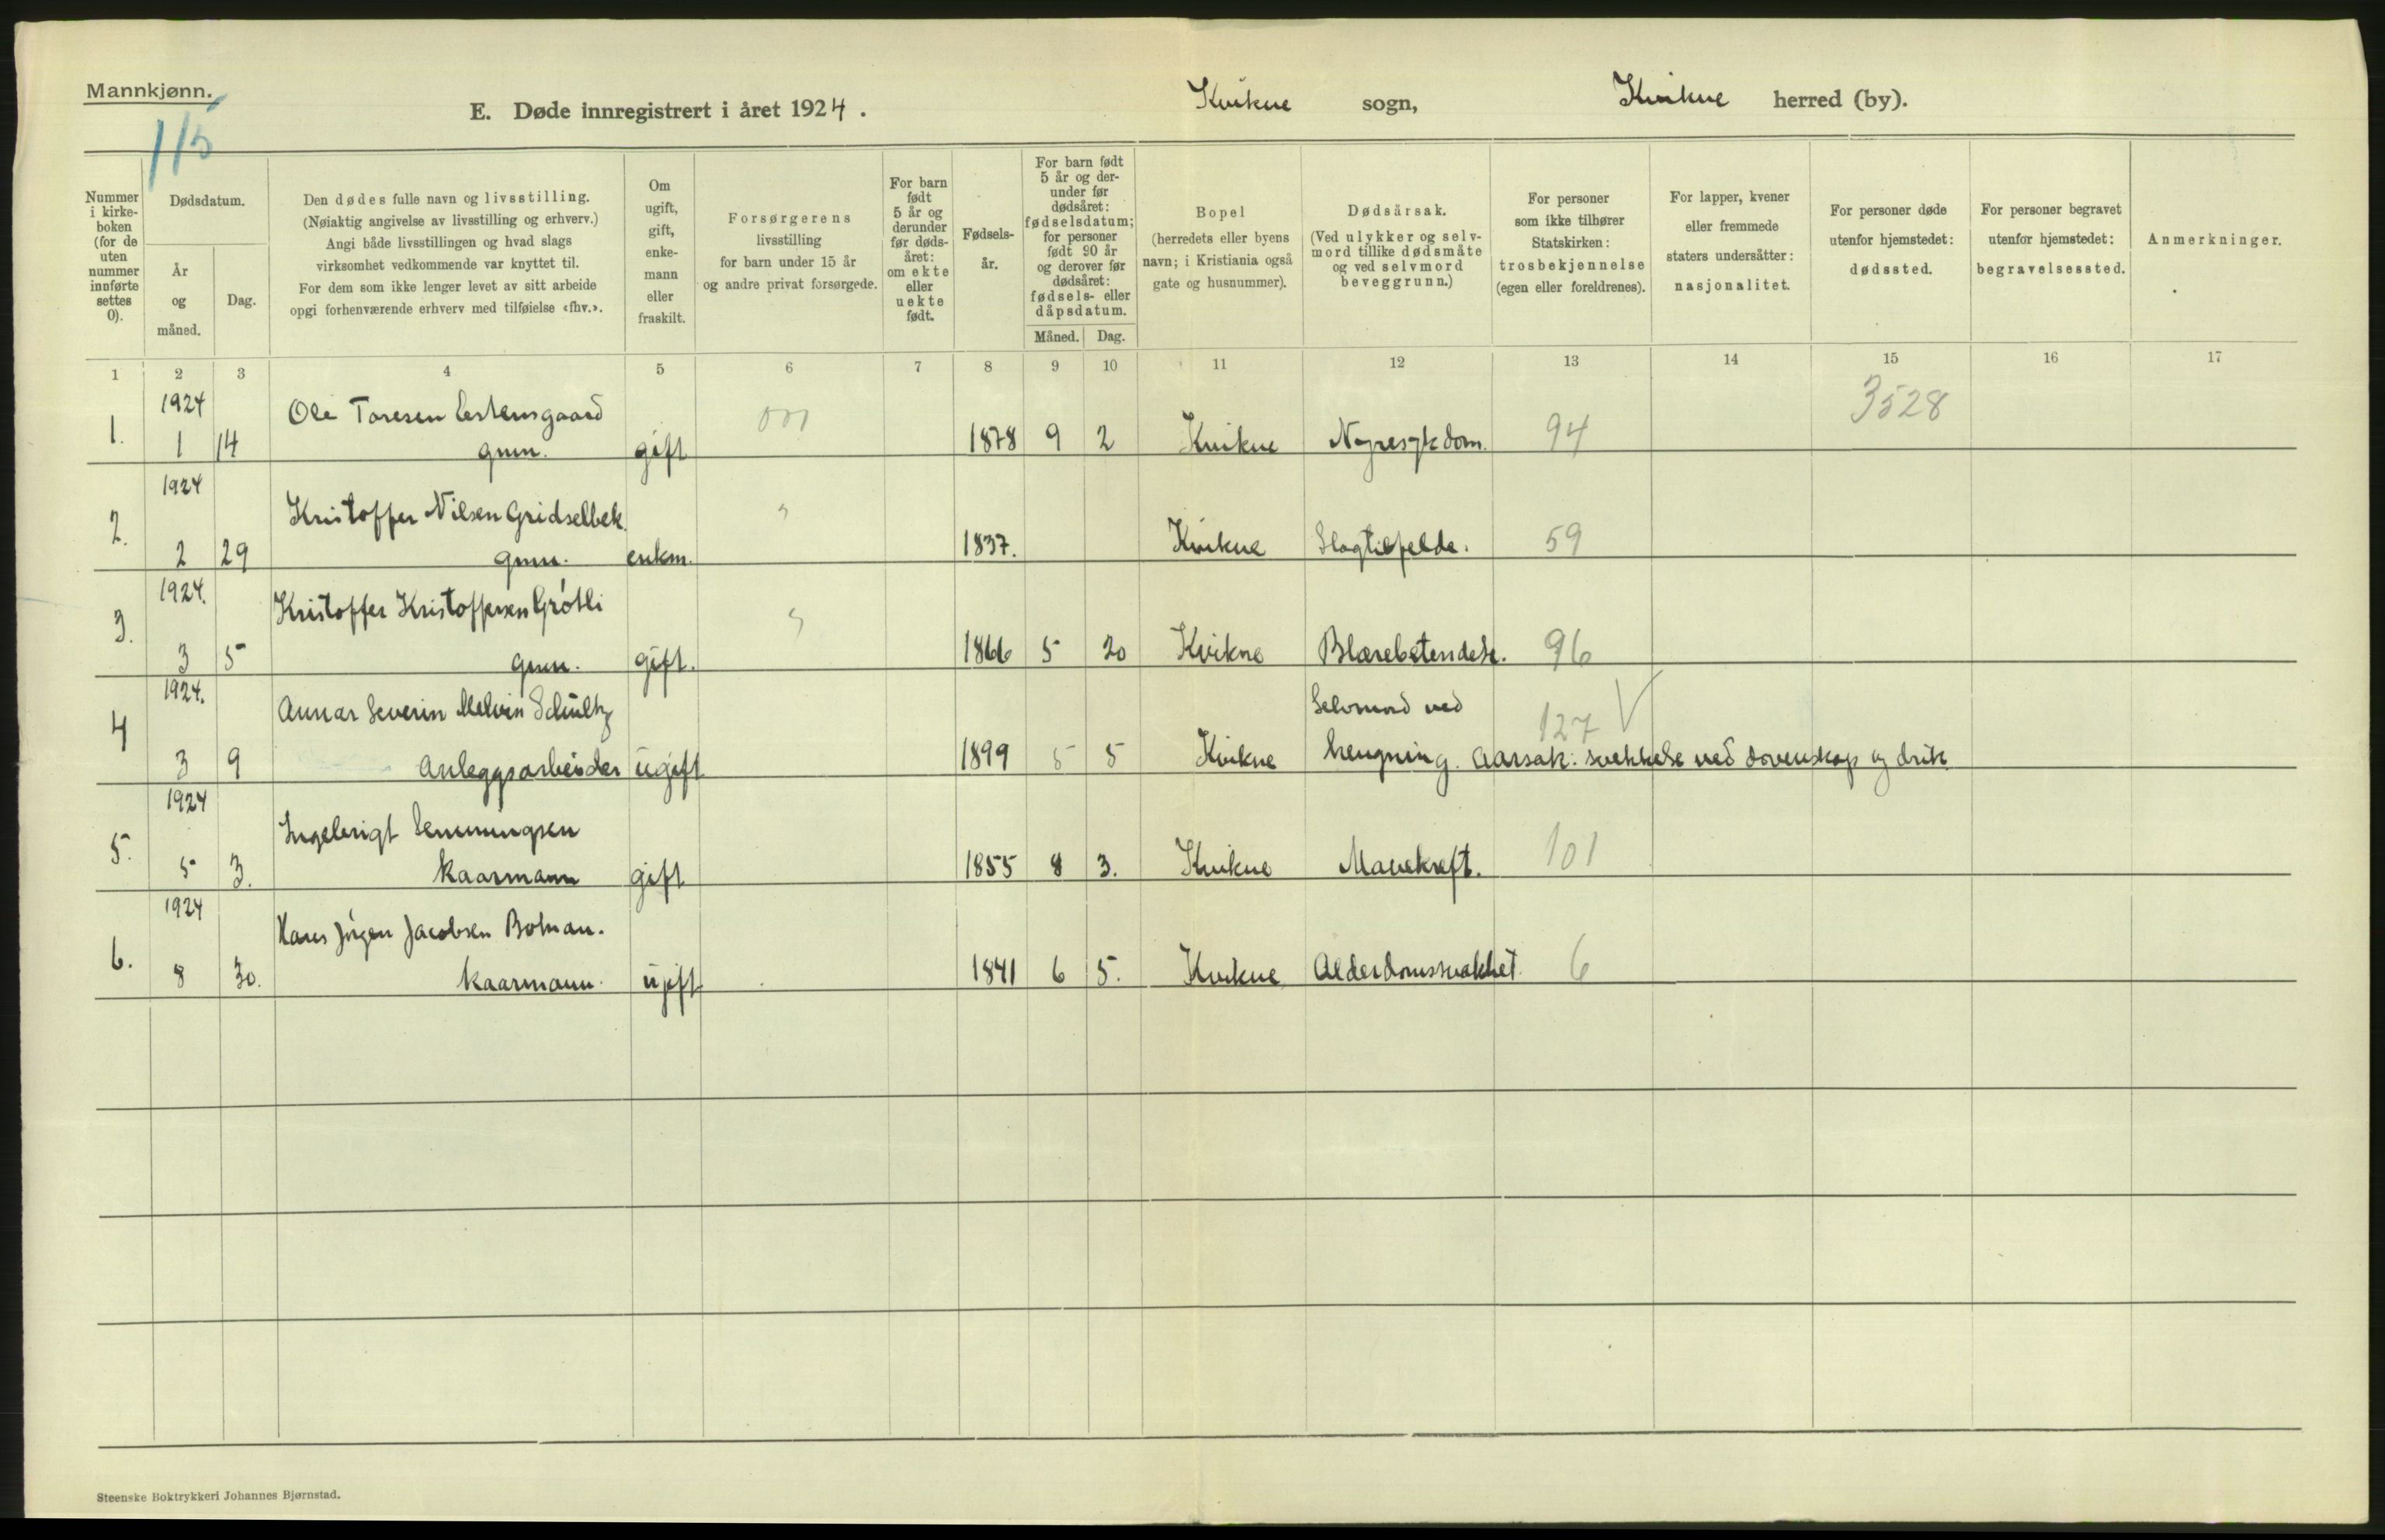 Mannkjønn.
115
E. Døde innregistrert i året 1924.
Kvikne sogn,
Kvikne herred (by).
Nummer i kirke-boken (for de uten nummer innførte settes 0).
Dødsdatum.
År og måned.
Dag.
Den dødes fulle navn og livsstilling.
(Nøiaktig angivelse av livsstilling og erhverv.)
Angi både livsstillingen og hvad slags
virksomhet vedkommende var knyttet til.
For dem som ikke lenger levet av sitt arbeide
opgi forhenværende erhverv med tilføielse «fhv.».
Om ugift, gift, enke-mann eller fraskilt.
Forsørgerens
livsstilling
for barn under 15 år
og andre privat forsørgede.
For barn født 5 år og derunder før døds-året: om ekte eller uekte født.
Fødsels-år.
For barn født 5 år og der-under før dødsåret: fødselsdatum; for personer født 90 år og derover før dødsåret: fødsels- eller dåpsdatum.
Måned. Dag.
Bopel
(herredets eller byens
navn; i Kristiania også
gate og husnummer).
Dødsårsak.
(Ved ulykker og selv-
mord tillike dødsmåte
og ved selvmord
beveggrunn.)
For personer
som ikke tilhører
Statskirken:
trosbekjennelse
(egen eller foreldrenes).
For lapper, kvener
eller fremmede
staters undersåtter:
nasjonalitet.
For personer døde
utenfor hjemstedet:
dødssted.
For personer begravet
utenfor hjemstedet:
begravelsessted.
Anmerkninger.
1 2 3 4 5 6 7 8 9 10 11 12 13 14 15 16 17
1924 Ole Toresen 3528
1. 1 14 gmn. gift 1878 9 2 Kvikne Nyresykdom. 94
1924
Kristoffer Nilsen Gridselbek "
2. 2 29 gmn. enkm. 1837. Kvikne Slagtilfelde. 59
1924.
Kristoffer Kristoffersen Grötli "
3. 3 5 gmn. gift. 1866 5 20 Kvikne Blærebetendelse. 96
1924.
Severin Melvin Schultz Selvmord ved 127 V
4 3 9 Anleggsarbeider ugift 1899 5 5 Kvikne hengning. Aarsak: svekkelse ved dovenskap og drik
1924
Ingebrigt
5. 5 3. Kaarmann gift 1855 8 3. Kvikne Mavekreft. 101
1924
Hans Jörgen Jacobsen
6. 8 30. Kaarmann. ugift 1841 6 5. Kvikne Alderdomssvakhet 6
Steenske Boktrykkeri Johannes Bjørnstad.